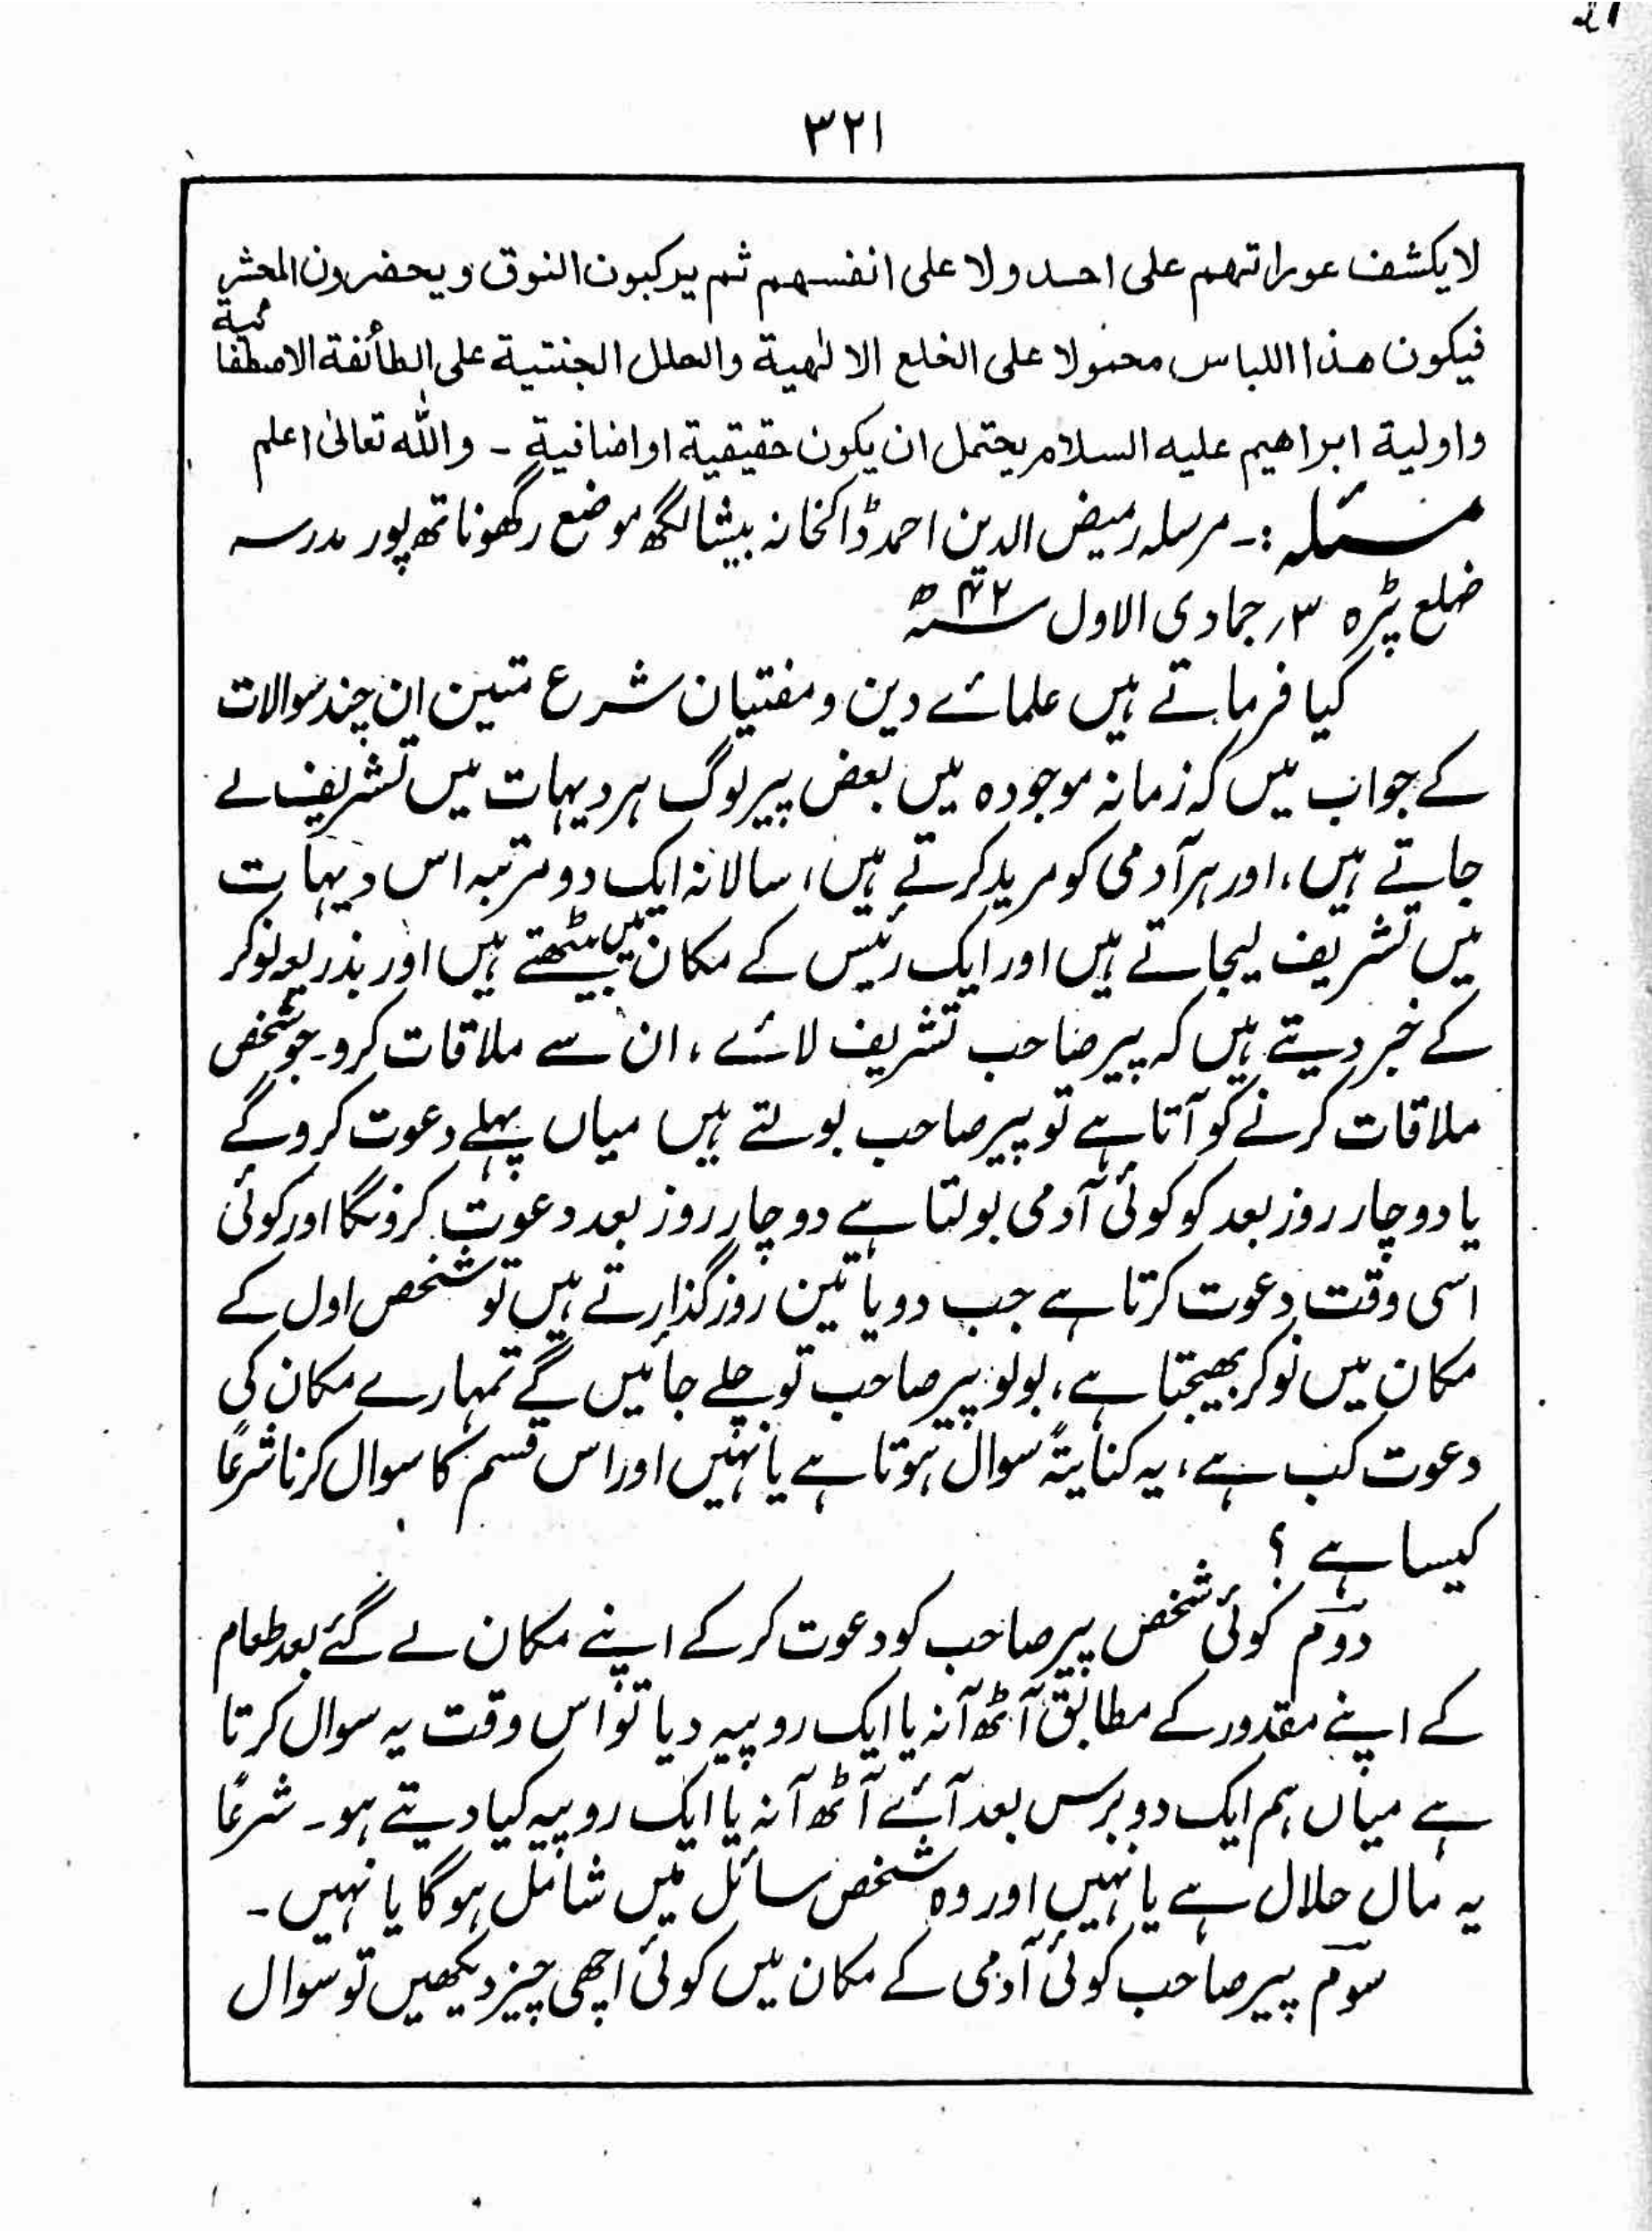 ۳۲۱
لا یکشف عوراتهم علی احد ولا علی انفسهم ثم یرکبون النوق ویحضرون المحشر
فیکون هذا اللباس محمولا علی الخلع الالٰهیة والحلل الجنتیة علی الطائفة الاصطفائیة
واولیة ابراهیم علیه السلام یحتمل ان یکون حقیقیة او اضافیة ۔ واللّٰه تعالیٰ اعلم
مسئلہ :۔ مرسلہ رمیض الدین احمد ڈاکخانہ بیشالگھ موضع رگھوناتھ پور مدرسہ
ضلع پٹرہ ۳؍ جمادی الاول ۴۲ھ
کیا فرماتے ہیں علمائے دین و مفتیان شرع متین ان چند سوالات
کے جواب میں کہ زمانہ موجودہ میں بعض پیر لوگ ہر دیہات میں تشریف لے
جاتے ہیں، اور ہر آدمی کو مرید کرتے ہیں، سالانہ ایک دو مرتبہ اس دیہات
میں تشریف لیجاتے ہیں اور ایک رئیس کے مکان میں بیٹھتے ہیں اور بذریعہ نوکر
کے خبر دیتے ہیں کہ پیر صاحب تشریف لائے، ان سے ملاقات کرو۔ جو شخص
ملاقات کرنے کو آتا ہے تو پیر صاحب بولتے ہیں میاں پہلے دعوت کرو گے
یا دو چار روز بعد کو کوئی آدمی بولتا ہے دو چار روز بعد دعوت کرونگا اور کوئی
اسی وقت دعوت کرتا ہے جب دو یا تین روز گذارتے ہیں تو شخص اول کے
مکان میں نوکر بھیجتا ہے، بولو پیر صاحب تو چلے جائیں گے تمہارے مکان کی
دعوت کب ہے، یہ کنایتہً سوال ہوتا ہے یا نہیں اور اس قسم کا سوال کرنا شرعاً
کیسا ہے ؟
دوم کوئی شخص پیر صاحب کو دعوت کر کے اپنے مکان لے گئے بعد طعام
کے اپنے مقدور کے مطابق آٹھ آنہ یا ایک روپیہ دیا تو اس وقت یہ سوال کرتا
ہے میاں ہم ایک دو برس بعد آئے آٹھ آنہ یا ایک روپیہ کیا دیتے ہو۔ شرعاً
یہ مال حلال ہے یا نہیں اور وہ شخص سائل میں شامل ہوگا یا نہیں۔
سوم پیر صاحب کوئی آدمی کے مکان میں کوئی اچھی چیز دیکھیں تو سوال